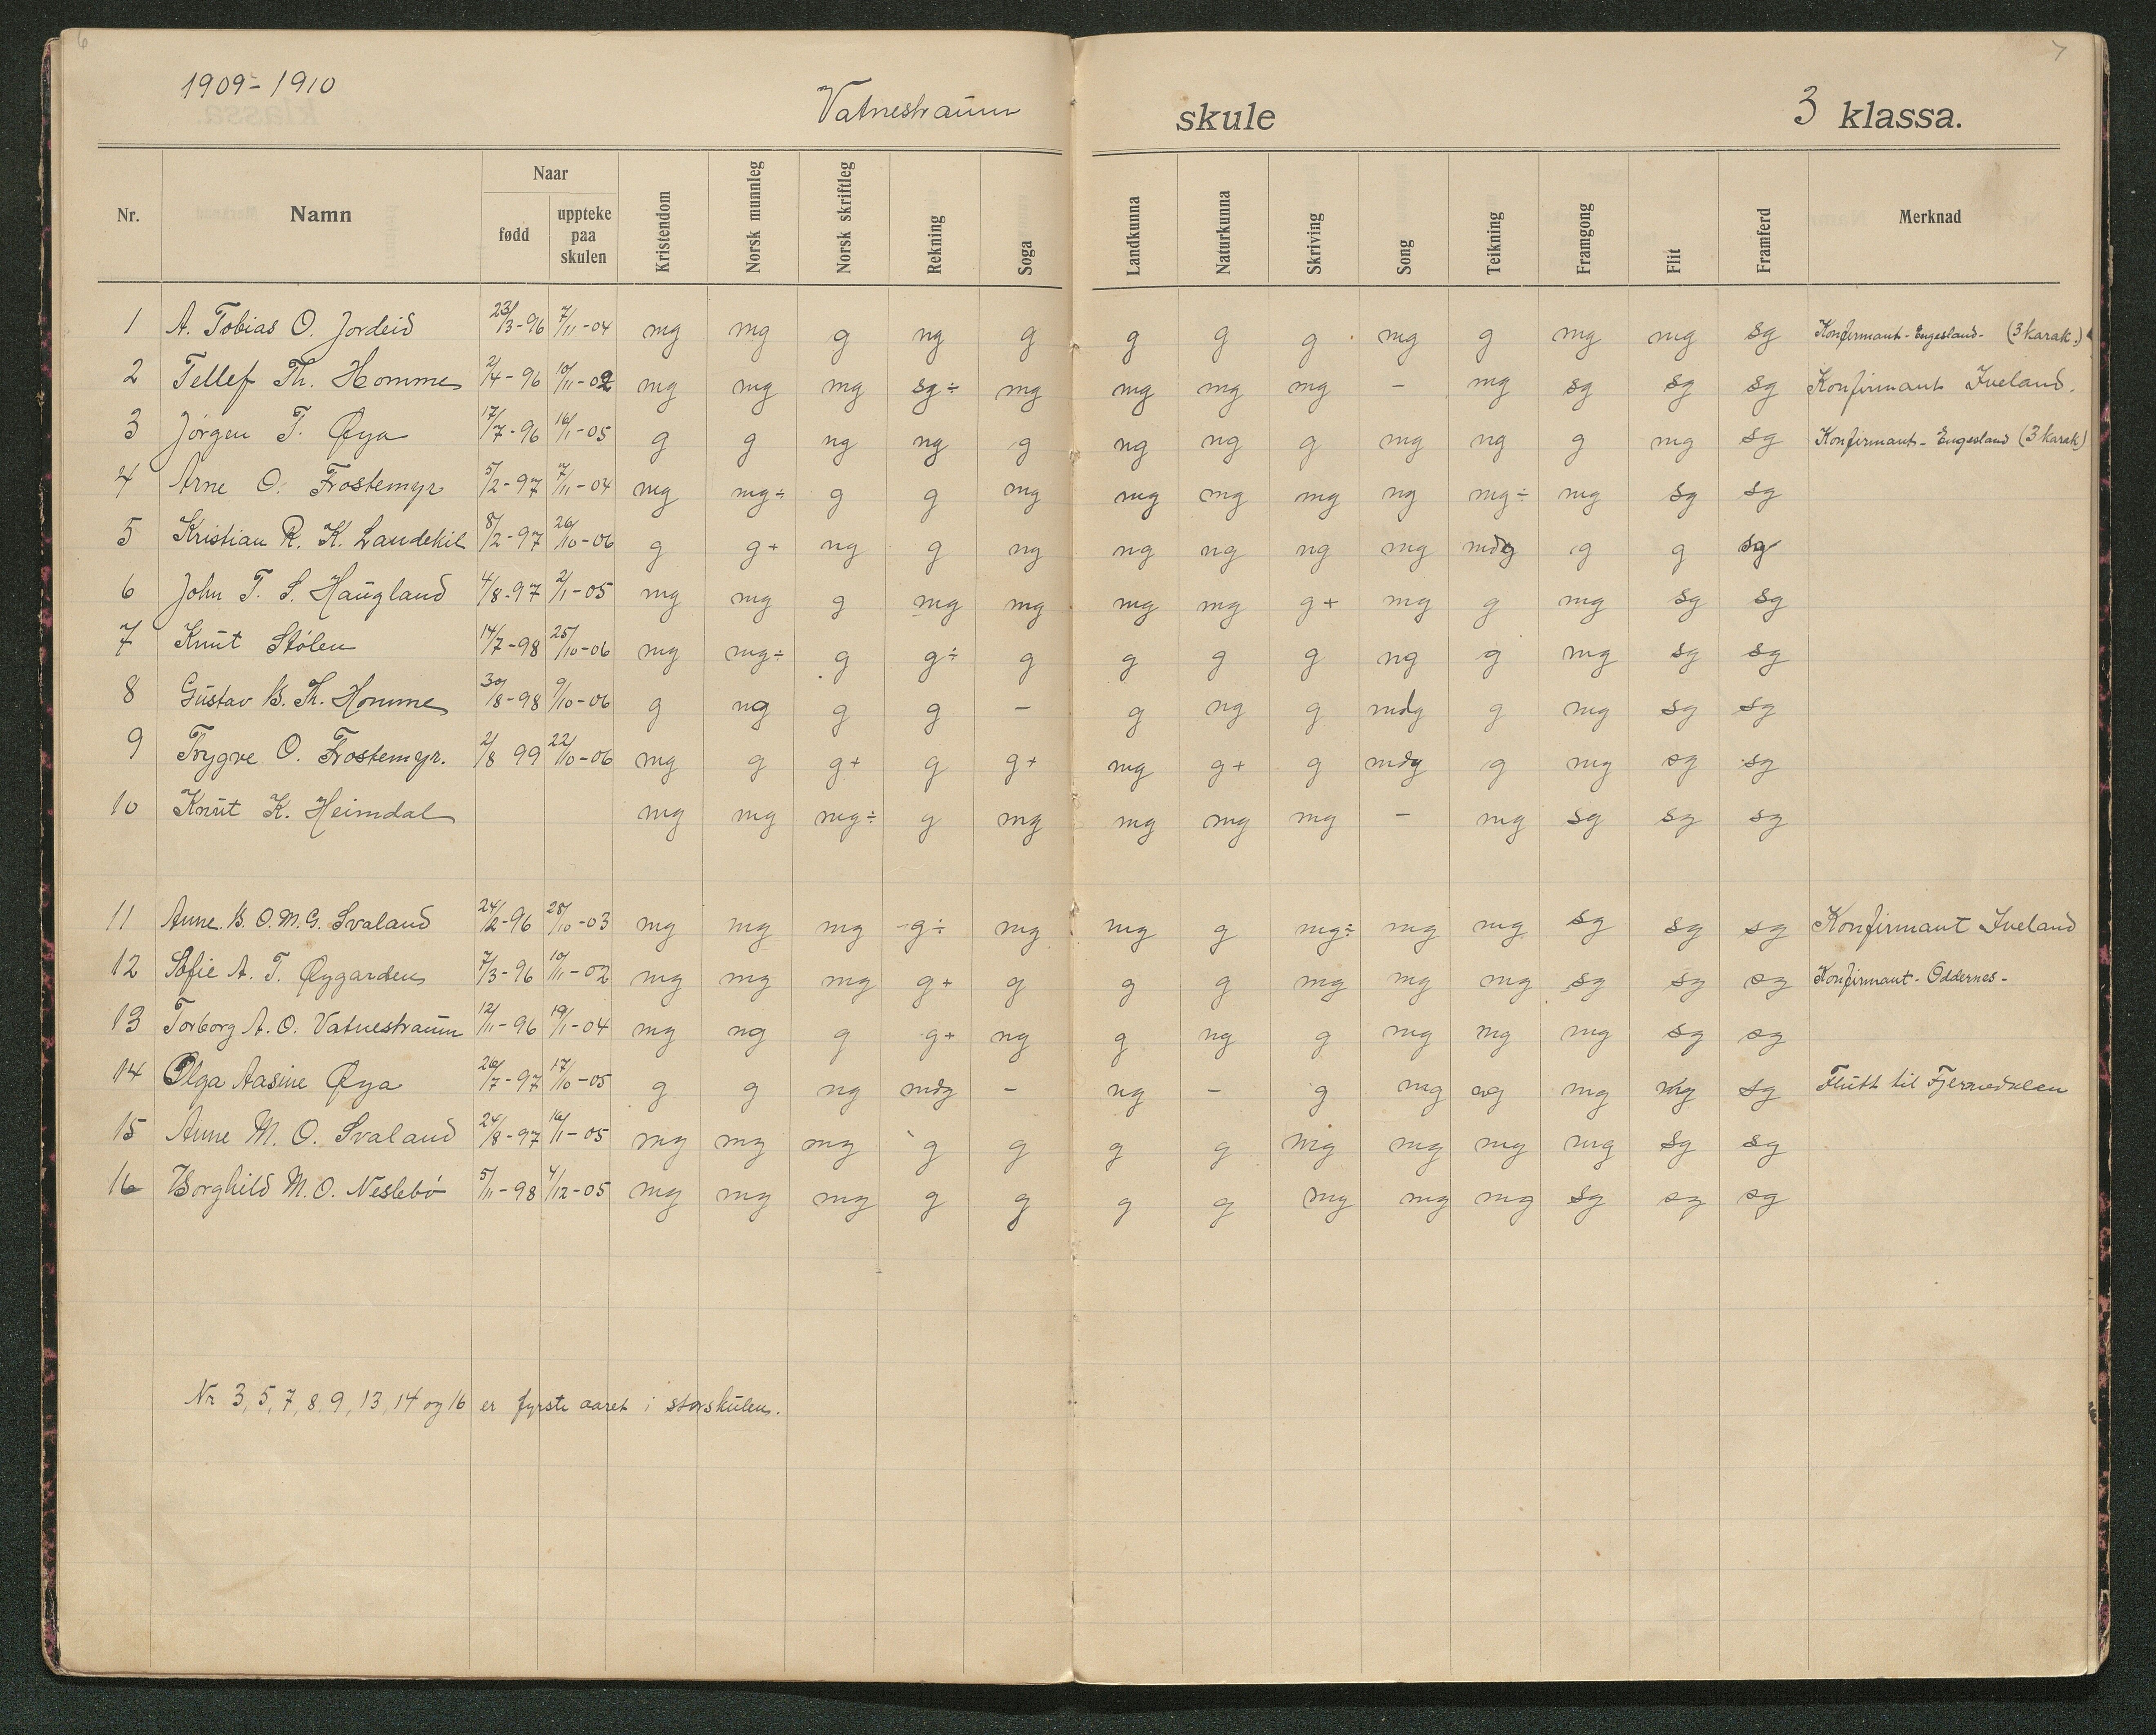 6
7
1909-1910 Vatnestraum skule 3 klassa.
Nr. Namn Naar Kristendom Norsk munnleg Norsk skriftleg Rekning Soga Landkunna Naturkunna Skriving Song Teikning Framgong Flit Framferd Merknad
fødd uppteke paa skulen
1 A. Tobias O. Jordeid 23/3-96 7/11-04 mg mg g ng g g g g mg g mg mg sg Konfirmant-Engesland- (3 karak.)
2 Tellef Th. Homme 2/4-96 10/11-02 mg mg mg sg÷ mg mg mg mg - mg sg sg sg Konfirmant Iveland.
3 Jørgen T. Øya 17/7-96 16/1-05 g g ng ng g ng ng g mg ng g mg sg Konfirmant-Engesland (3 karak)
4 Arne O. Frostemyr 5/2-97 7/11-04 mg mg÷ g g mg mg mg mg ng mg÷ mg sg sg
5 Kristian R. K. Landekil 8/2-97 26/10-06 g g+ ng g ng ng ng ng mg mdg g g sg
6 John T. S. Haugland 4/8-97 2/1-05 mg mg g mg mg mg mg g+ mg g mg sg sg
7 Knut Stølen 14/7-98 25/10-06 mg mg÷ g g÷ g g g g ng g mg sg sg
8 Gustav B. Th. Homme 30/8-98 9/10-06 g ng g g - g ng g mdg g mg sg sg
9 Trygve O. Frostemyr. 2/8 99 22/10-06 mg g g+ g g+ mg g+ g mdg g mg sg sg
10 Knut K. Heimdal mg mg mg÷ g mg mg mg mg - mg sg sg sg
11 Anne. B. O. M. G. Svaland 24/2-96 28/10-03 mg mg mg g÷ mg mg g mg÷ mg mg sg sg sg Konfirmant Iveland
12 Sofie A. T. Øygarden 7/3-96 10/11-02 mg mg mg g+ g g g mg mg mg sg sg sg Konfirmant-Oddernes-
13 Torborg A. O. Vatnestraum 12/11-96 19/1-04 mg ng g g+ ng g ng g mg mg mg sg sg
14 Olga Aasine Øya 26/7-97 17/10-05 g g ng mdg - ng - g mg ng mg mg sg Flutt til Fjermedalen
15 Anne M. O. Svaland 24/8-97 16/1-05 mg mg mg g g g g mg mg mg mg sg sg
16 Borghild M. O. Neslebø 5/11-98 4/12-05 mg mg mg g g g g mg mg mg sg sg sg
Nr 3, 5, 7, 8, 9, 13, 14 og 16 er fyrste aaret i storskulen.